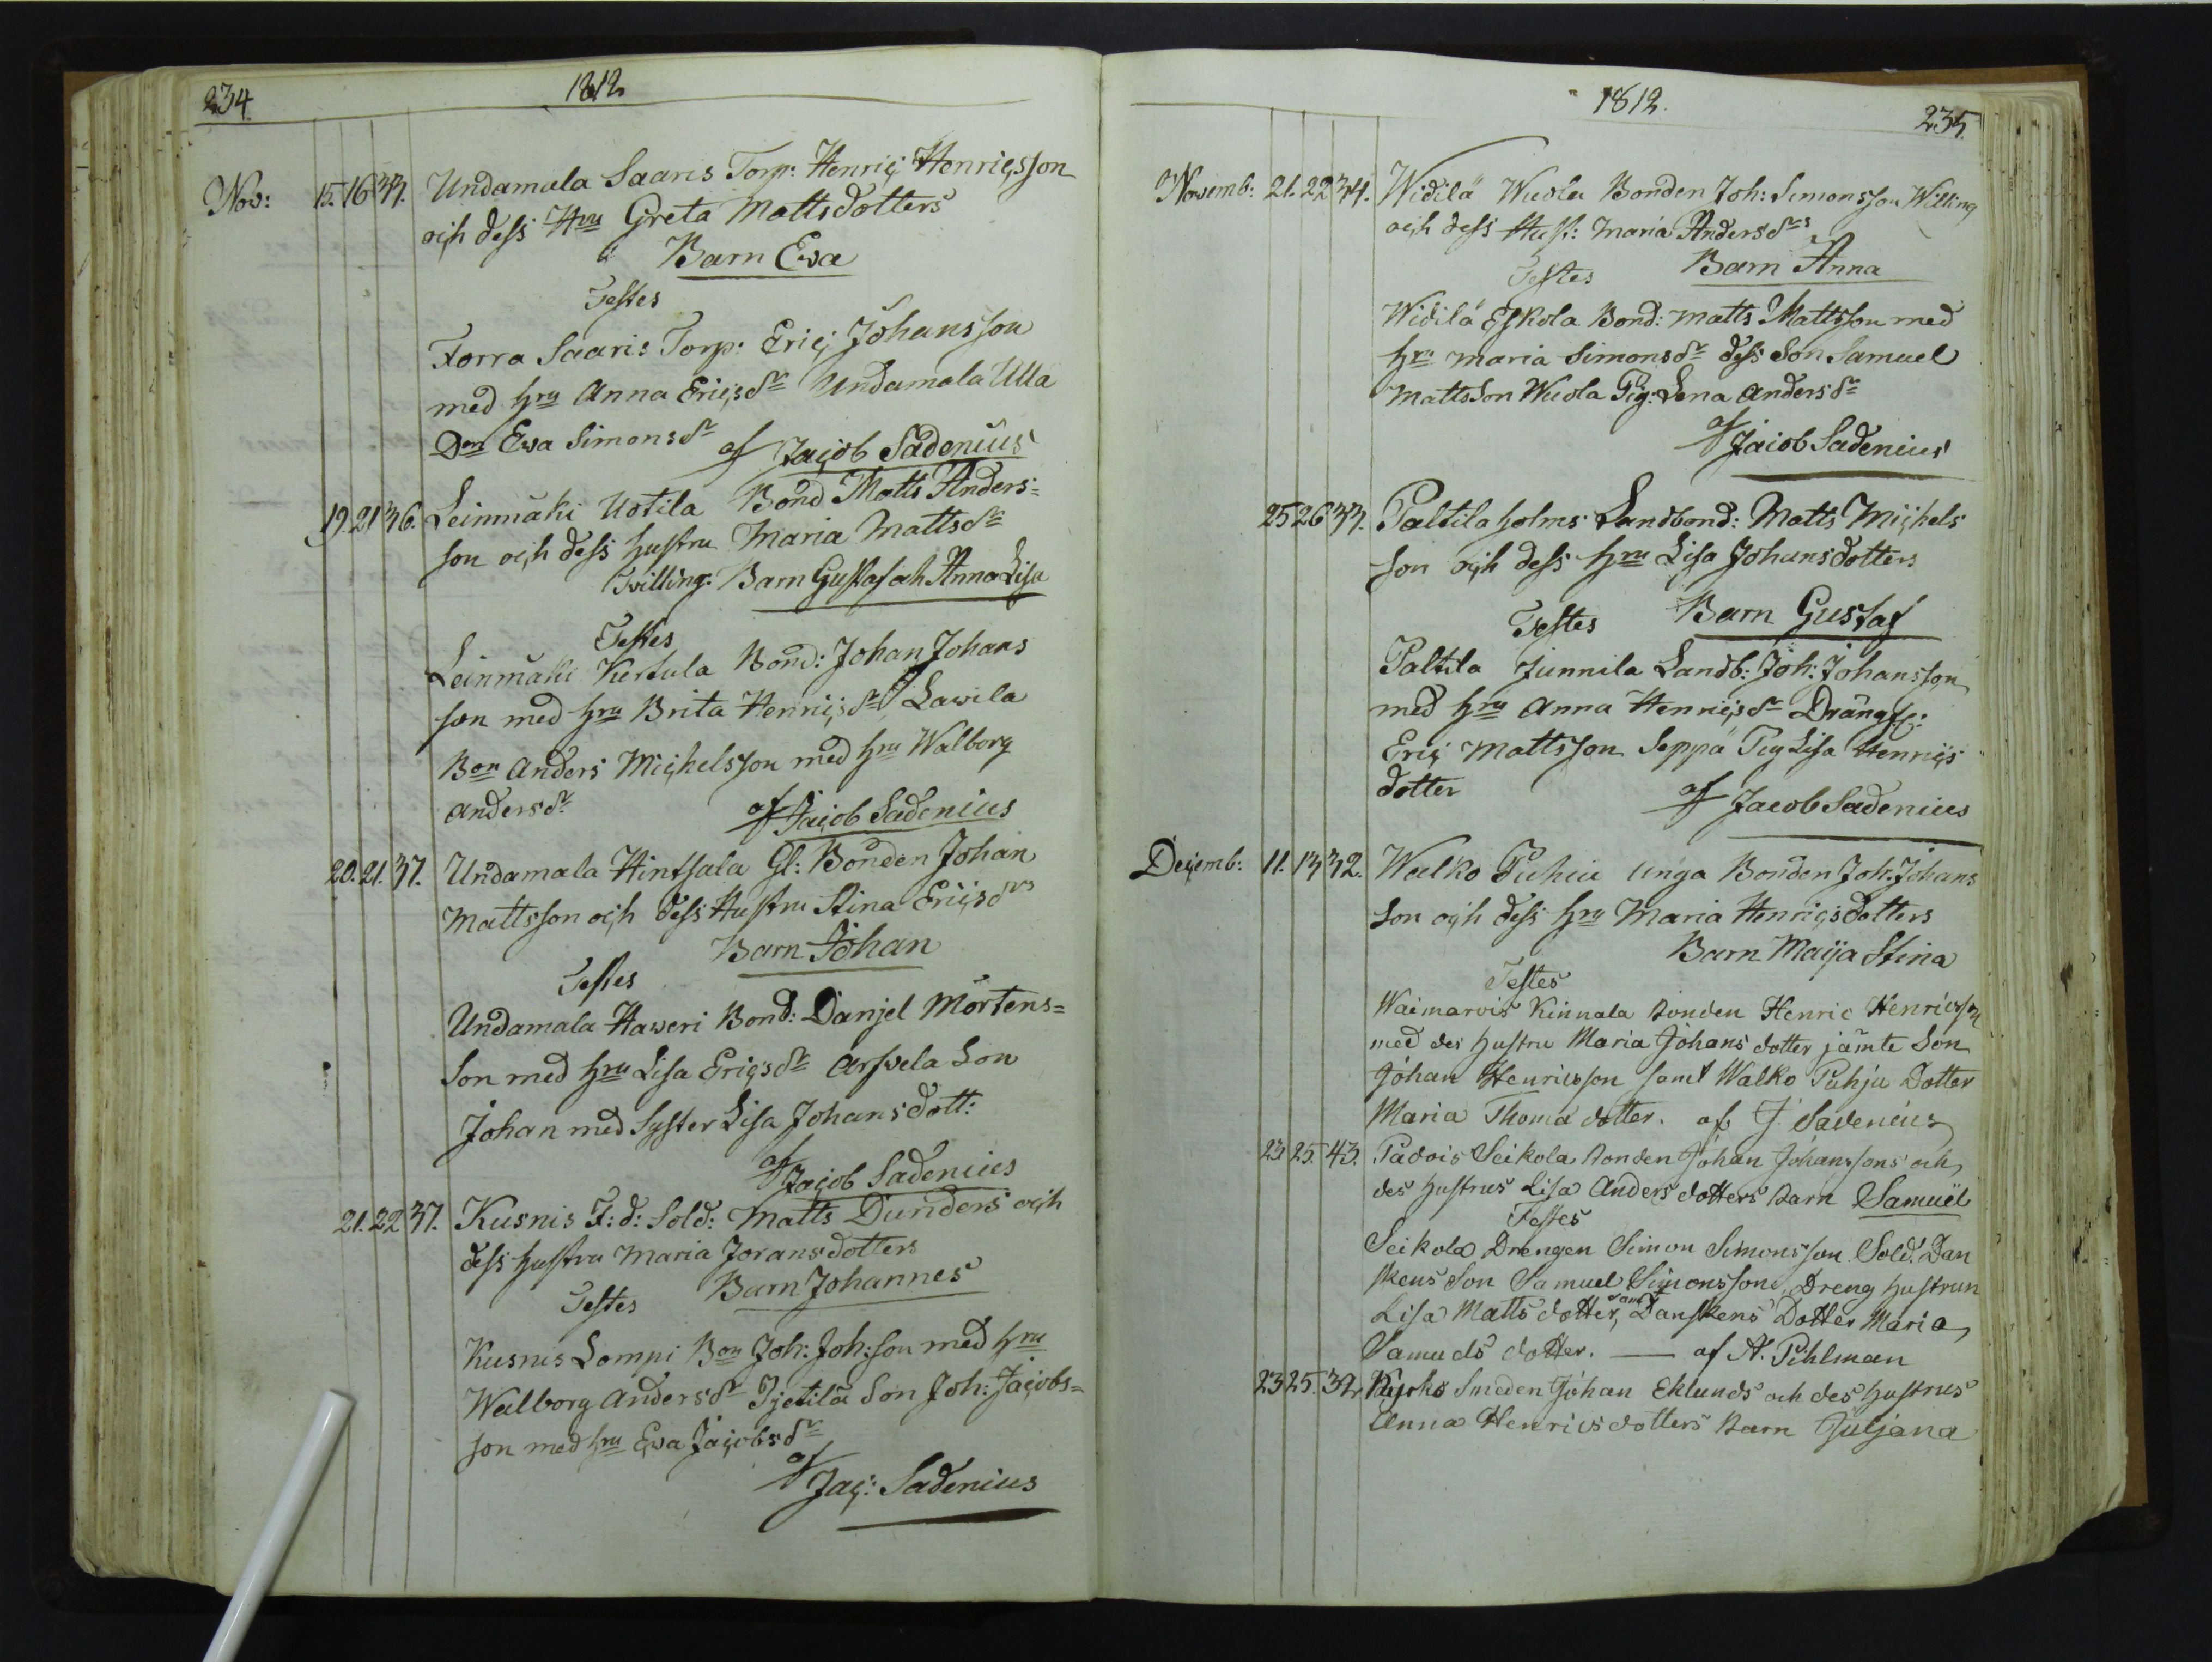 234.
1812
Nov: 15. 16 33. Undamala Saaris Torp: Henric Henricsson
och dess Hru Greta Mattsdotters
Barn Ewa
Testes
Torra Saaris Torp: Eric Johansson
med hru Anna Ericsdr Undamala Ulla
Don Ewa Simonsdr
af Jacob Sadenius
19. 21 36. Leinmäki Uotila Bond Matts Anders=
son och dess hustru Maria Mattsdr
Tvilling: Barn Gustaf och Anna Lisa
Testes
Leinmäki Kertula Bond: Johan Johans
son med hru Brita Henricsdr Lawila
Bon Anders Michelsson med hru Walborg
Andersdr
af Jacob Sadenius
20. 21. 37. Undamala Hintsala Gl: Bonden Johan
Mattsson och dess Hustru Stina Ericsdrs
Barn Johan
Testes
Undamala Haweri Bond: Danjel Mortens=
Son med hru Lisa Ericsdr Arfwela Son
Johan med Syster Lisa Johansdott:
af Jacob Sadenius
21. 22 37. Kusnis F: d: Sold: Matts Dunders och
dess hustru Maria Joransdotters
Barn Johannes
Testes
Kusnis Lompi Bon Joh: Joh:son med hru
Walborg Andersdr Tjetilä Son Joh: Jacobs=
son med hru Ewa Jacobsdr
af Jac: Sadenius
1812.
235.
Novemb: 21. 22 34. Widilä Wuola Bonden Joh: Simonsson Willing
och dess Hust: Maria Andersdrs
Barn Anna
Testes
Widilä Eskola Bond: Matts Mattsson med
hru Maria Simonsdr dess Son Samuel
Mattsson Wuola Pig: Lena Andersdr
af Jacob Sadenius
25 26 33. Paltila holms Landbond: Matts Michels
son och dess hru Lisa Johansdotters
Barn Gustaf
Testes
Paltila Junnila Landb: Joh: Johansson
med hru Anna Henricsdr Drängs:
Eric Mattsson Seppä Pig Lisa Henrics
dotter
af Jacob Sadenius
Decemb: 11. 13 32. Walko Puhju unga Bonden Joh: Johans
son och dess hru Maria Henricsdotters
Barn Maija Stina
Testes
Waimarois Kinnala bonden Henric Henricsson
med des hustru Maria Johans dotter jämte Son
Johan Henricsson samt Walko Puhju Dotter
Maria Thomä dotter. af J. Sadenius
23 25. 43. Padois Seikola bonden Johan Johanssons och
des hustrus Lisa Anders dotters barn Samuel
Testes
Seikola Drengen Simon Simonsson Sold. Dan
skens Son Samuel Simonsson, Dreng hustrun
Lisa Matts dotter, samt Danskens Dotter Maria
Samuels dotter. — af A. Pihlman
23 25. 32. Kyrko Smeden Johan Eklunds och des hustrus
Anna Henrics dotters barn Juljana